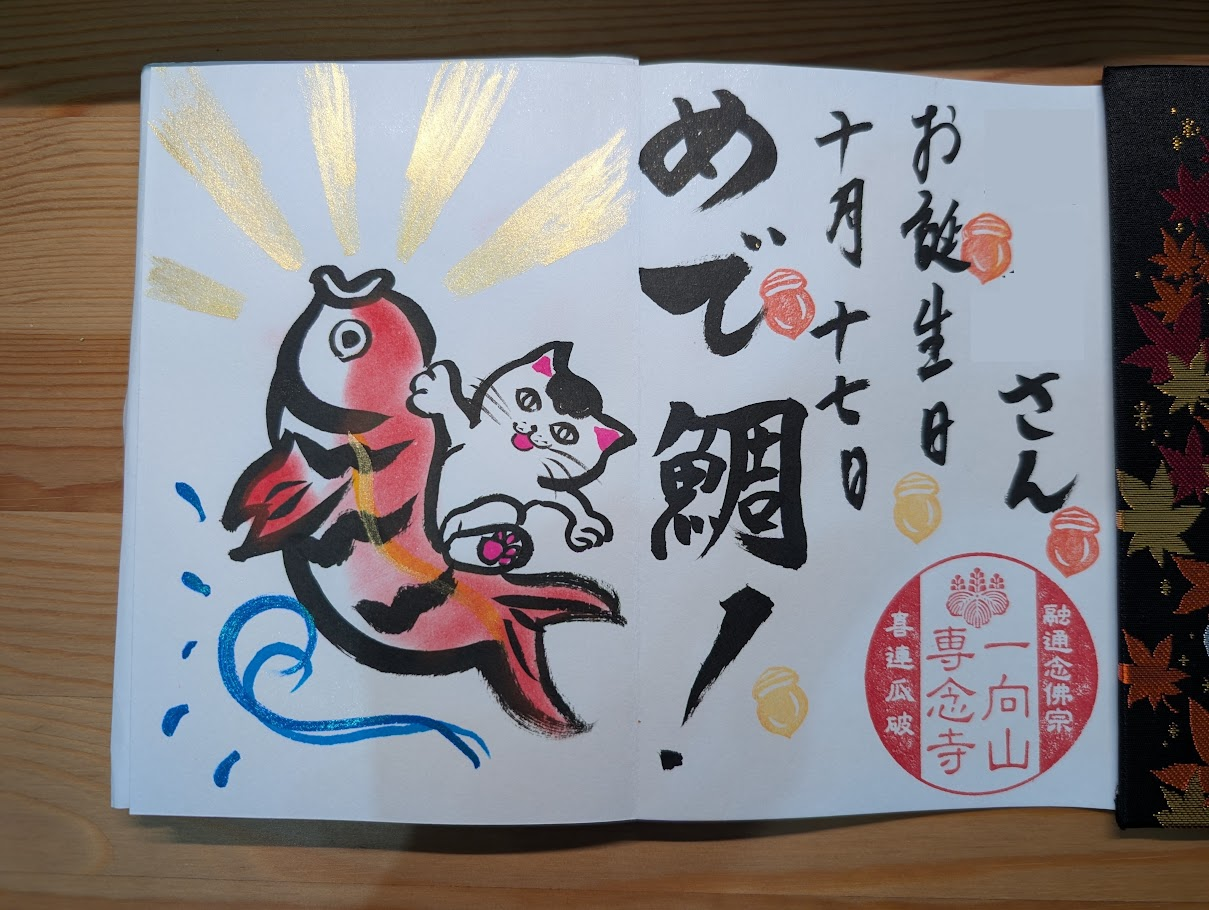 さん
お誕生日
十月十七日
めで鯛!
融通念佛宗
一向山
専念寺
喜連瓜破